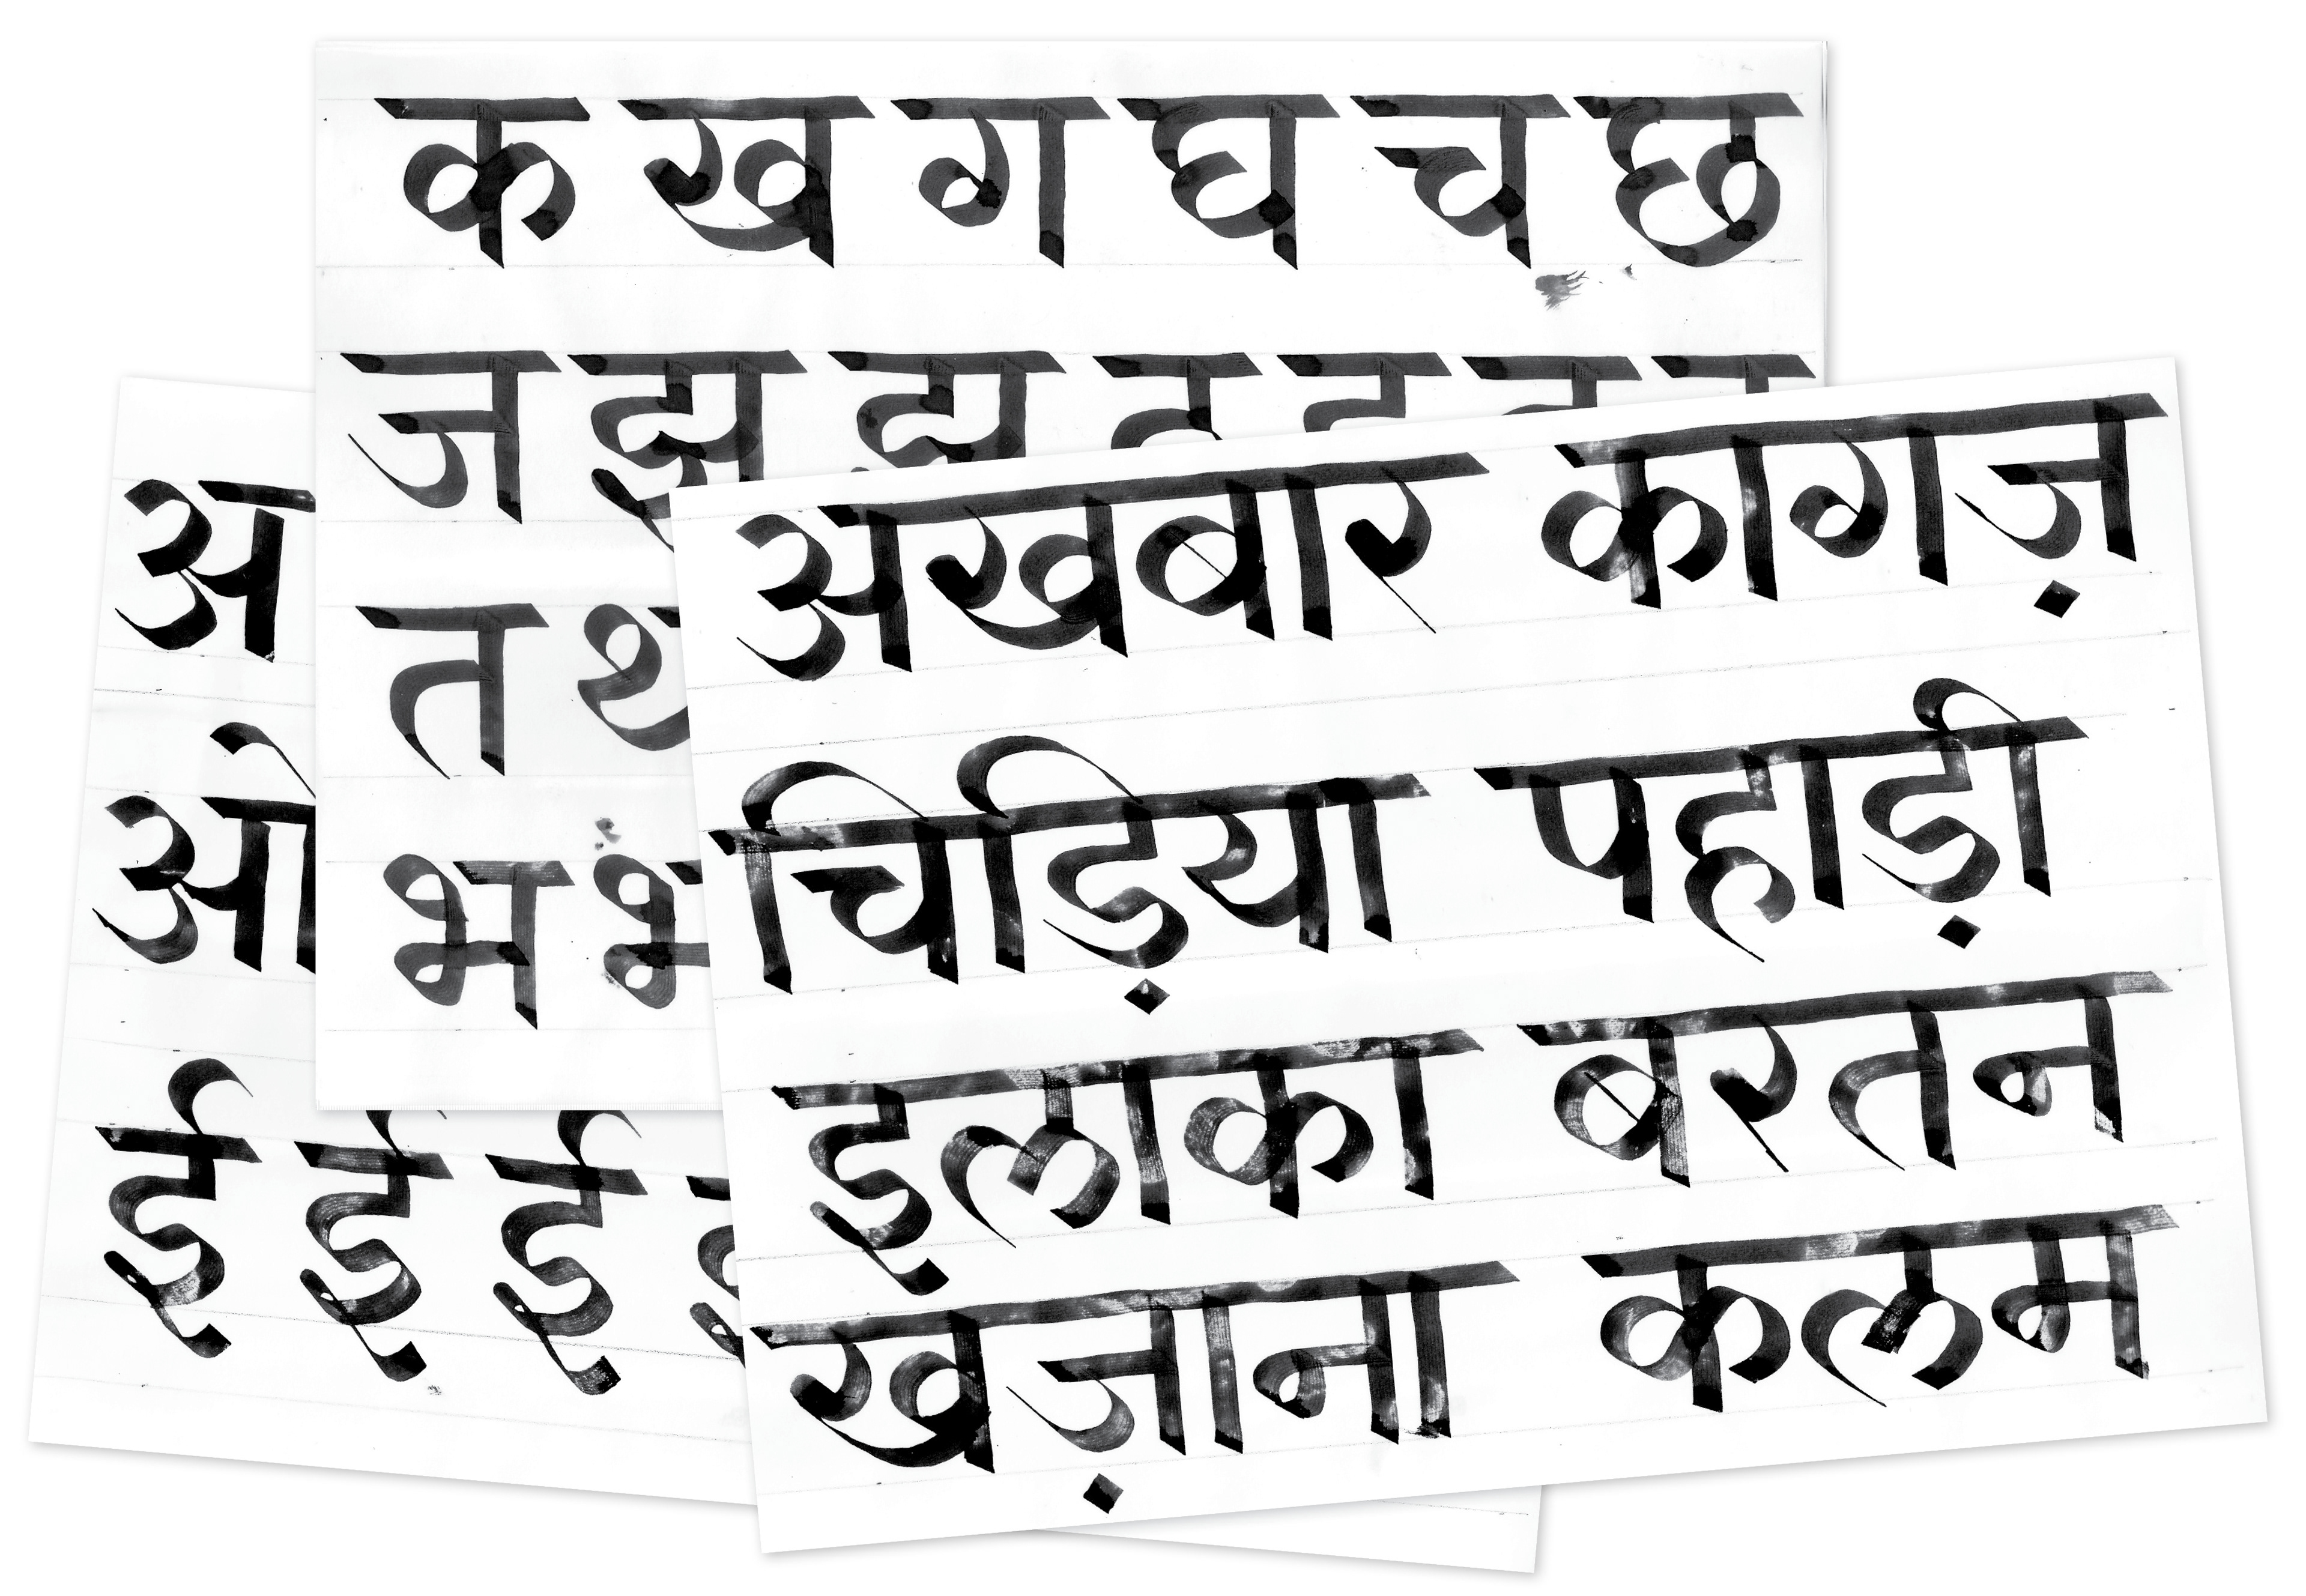 क ख ग घ च छ
ज झ झ
त थ
भ
अ
ओ
ई ई ई
अखबार कागज़
चिड़िया पहाड़ी
इलाका बरतन
खज़ाना कलम